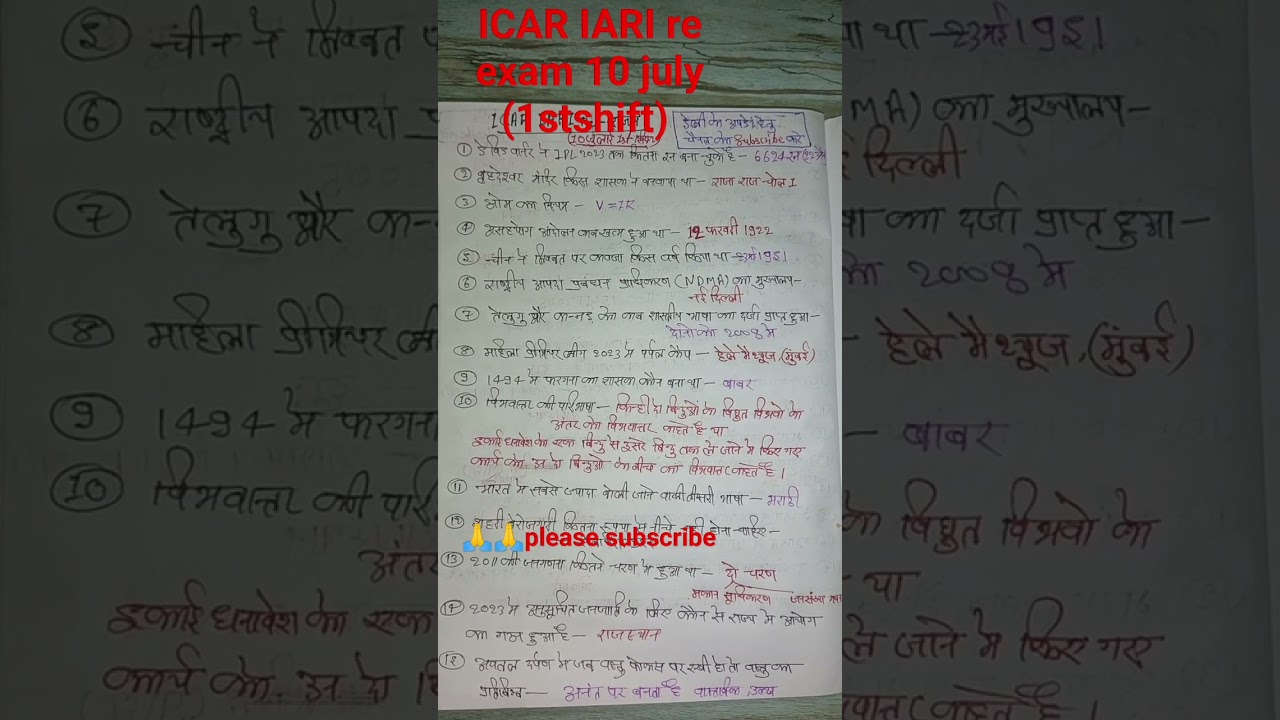 ICAR IARI re
exam 10 july
(1stshift)
डेली के अपडेट हेतु
चैनल को Subscribe करे
① डेविड वार्नर ने IPL 2023 तक कितना रन बना चुके है – 6624 रन
② वृहदेश्वर मंदिर किस शासक ने बनवाया था – राजा राज चोल I
③ ओम का नियम – V = IR
④ असहयोग आंदोलन कब खत्म हुआ था – 12 फरवरी 1922
⑤ चीन ने तिब्बत पर कब्जा किस वर्ष किया था – 23 मई 1951
⑥ राष्ट्रीय आपदा प्रबंधन प्राधिकरण (NDMA) का मुख्यालय –
नई दिल्ली
⑦ तेलुगु और कन्नड़ को कब शास्त्रीय भाषा का दर्जा प्राप्त हुआ –
दोनो को 2008 मे
⑧ महिला प्रीमियर लीग 2023 मे पर्पल कैप – हेले मैथ्यूज, (मुंबई)
⑨ 1494 मे फरगना का शासक कौन बना था – बाबर
⑩ विभवान्तर की परिभाषा – किन्ही दो बिन्दुओं के विधुत विभवो के
अंतर को विभवान्तर कहते है या
इकाई धनावेश को एक बिन्दु से दुसरे बिन्दु तक ले जाने मे किए गए
कार्य को उन दो बिन्दुओ के बीच का विभवान्तर कहते है ।
⑪ भारत मे सबसे ज्यादा बोली जाने वाली तीसरी भाषा – मराठी
⑫ शहरी बेरोजगारी कितना रूपया से नीचे नही होना चाहिए –
🙏🙏please subscribe
⑬ 2011 की जनगणना कितने चरण मे हुआ था – दो चरण
मकान सूचिकरण जनसंख्या
⑭ 2023 मे अनुसूचित जनजाति के लिए कौन से राज्य मे आयोग
का गठन हुआ है – राजस्थान
अवतल दर्पण मे जब वस्तु फोकस पर रखी हो तो वस्तु का
प्रतिबिम्ब – अनंत पर बनता है वास्तविक, उल्टा